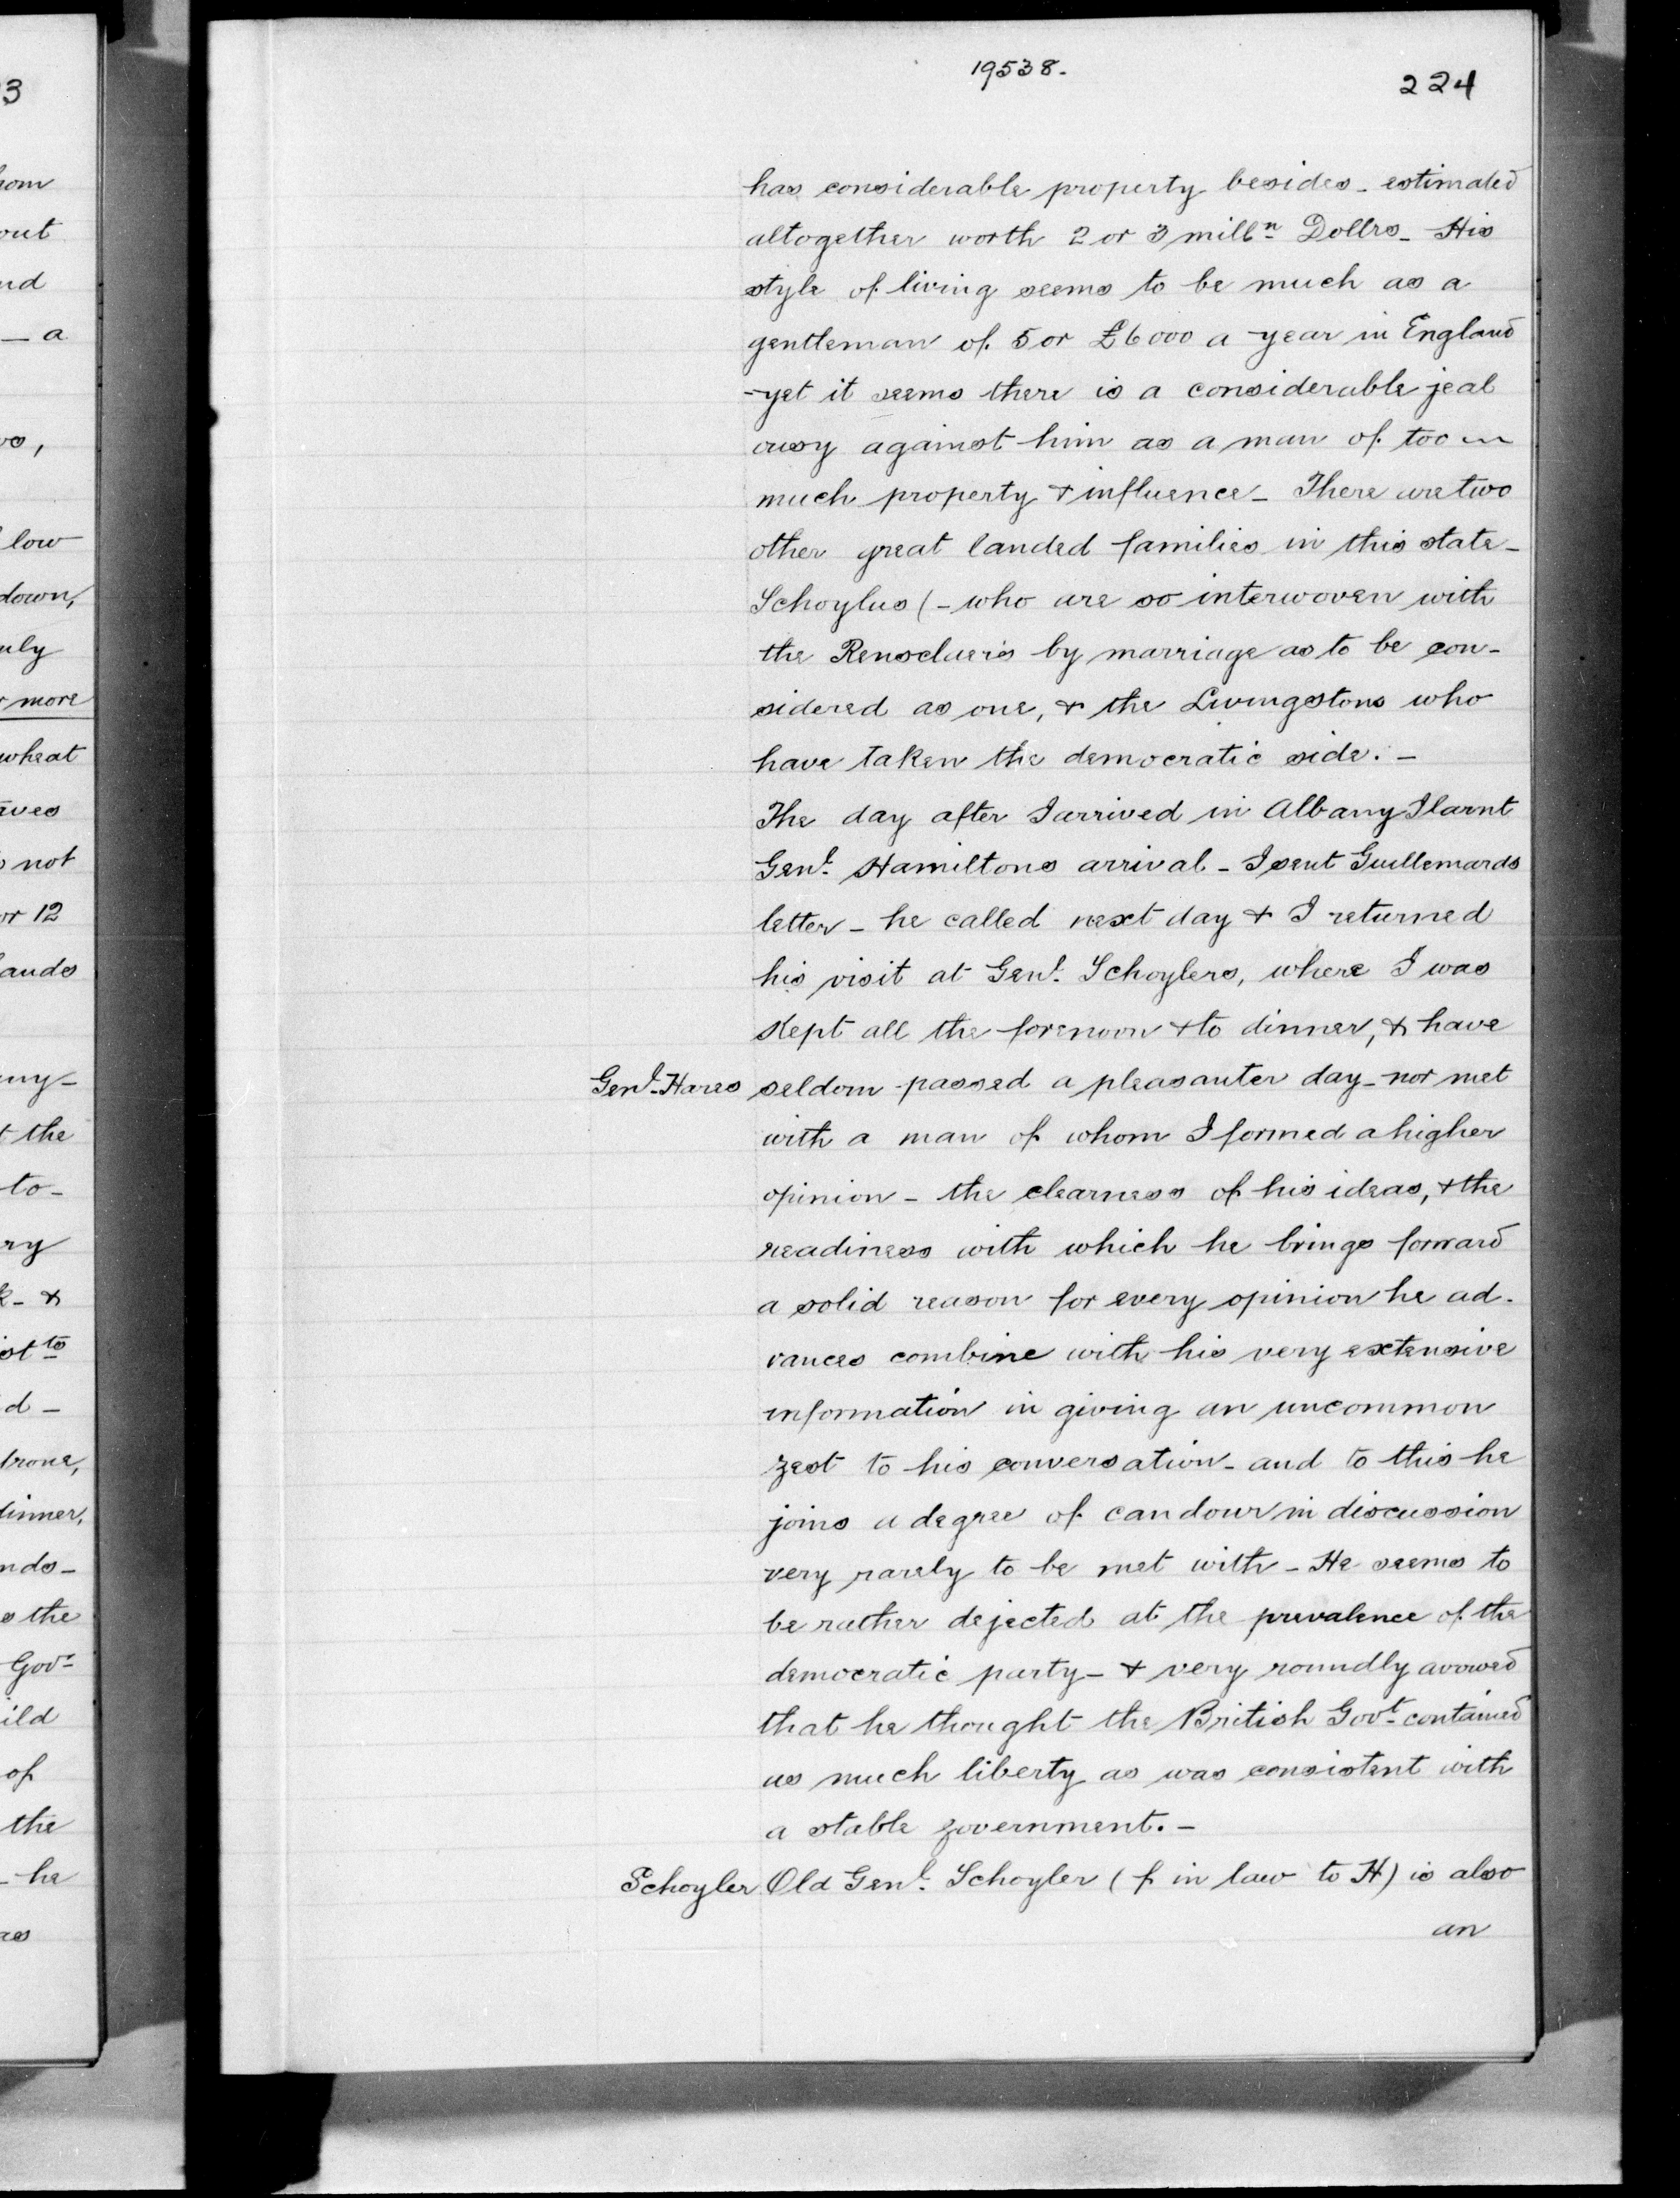 3
hom
out
nd
- a
vs,
low
down,
uly
r more
wheat
aves
not
or 12
lands
any-
t the
to-
ry
k- &
ist to
d -
trone,
dinner,
nds-
s the
Govr
ild
of
the
- he
as
19538.
224
has considerable property besides - estimated
altogether worth 2 or 3 milln Dollrs - His
style of living seems to be much as a
gentleman of 5 or £6000 a year in England
- yet it seems there is a considerable jeal
ousy against him as a man of too
much property & influence - There are two
other great landed families in this state -
Schoylus (- who are so interwoven with
the Rensclaer's by marriage as to be con-
sidered as one, & the Livingstons who
have taken the democratic side. -
The day after I arrived in Albany I larnt
Genl. Hamiltons arrival - I sent Guillemards
letter - he called next day & I returned
his visit at Genl. Schoylers, where I was
kept all the forenoon & to dinner, & have
Genl. Hares seldom passed a pleasanter day - nor met
with a man of whom I formed a higher
opinion - the clearness of his ideas, & the
readiness with which he brings forward
a solid reason for every opinion he ad-
vances combine with his very extensive
information in giving an uncommon
zest to his conversation - and to this he
joins a degree of candour in discussion
very rarely to be met with - He seems to
be rather dejected at the prevalence of the
democratic party - & very roundly avowed
that he thought the British Govt. contained
as much liberty as was consistent with
a stable government. -
Schoyler Old Genl. Schoyler (f in law to H) is also
an